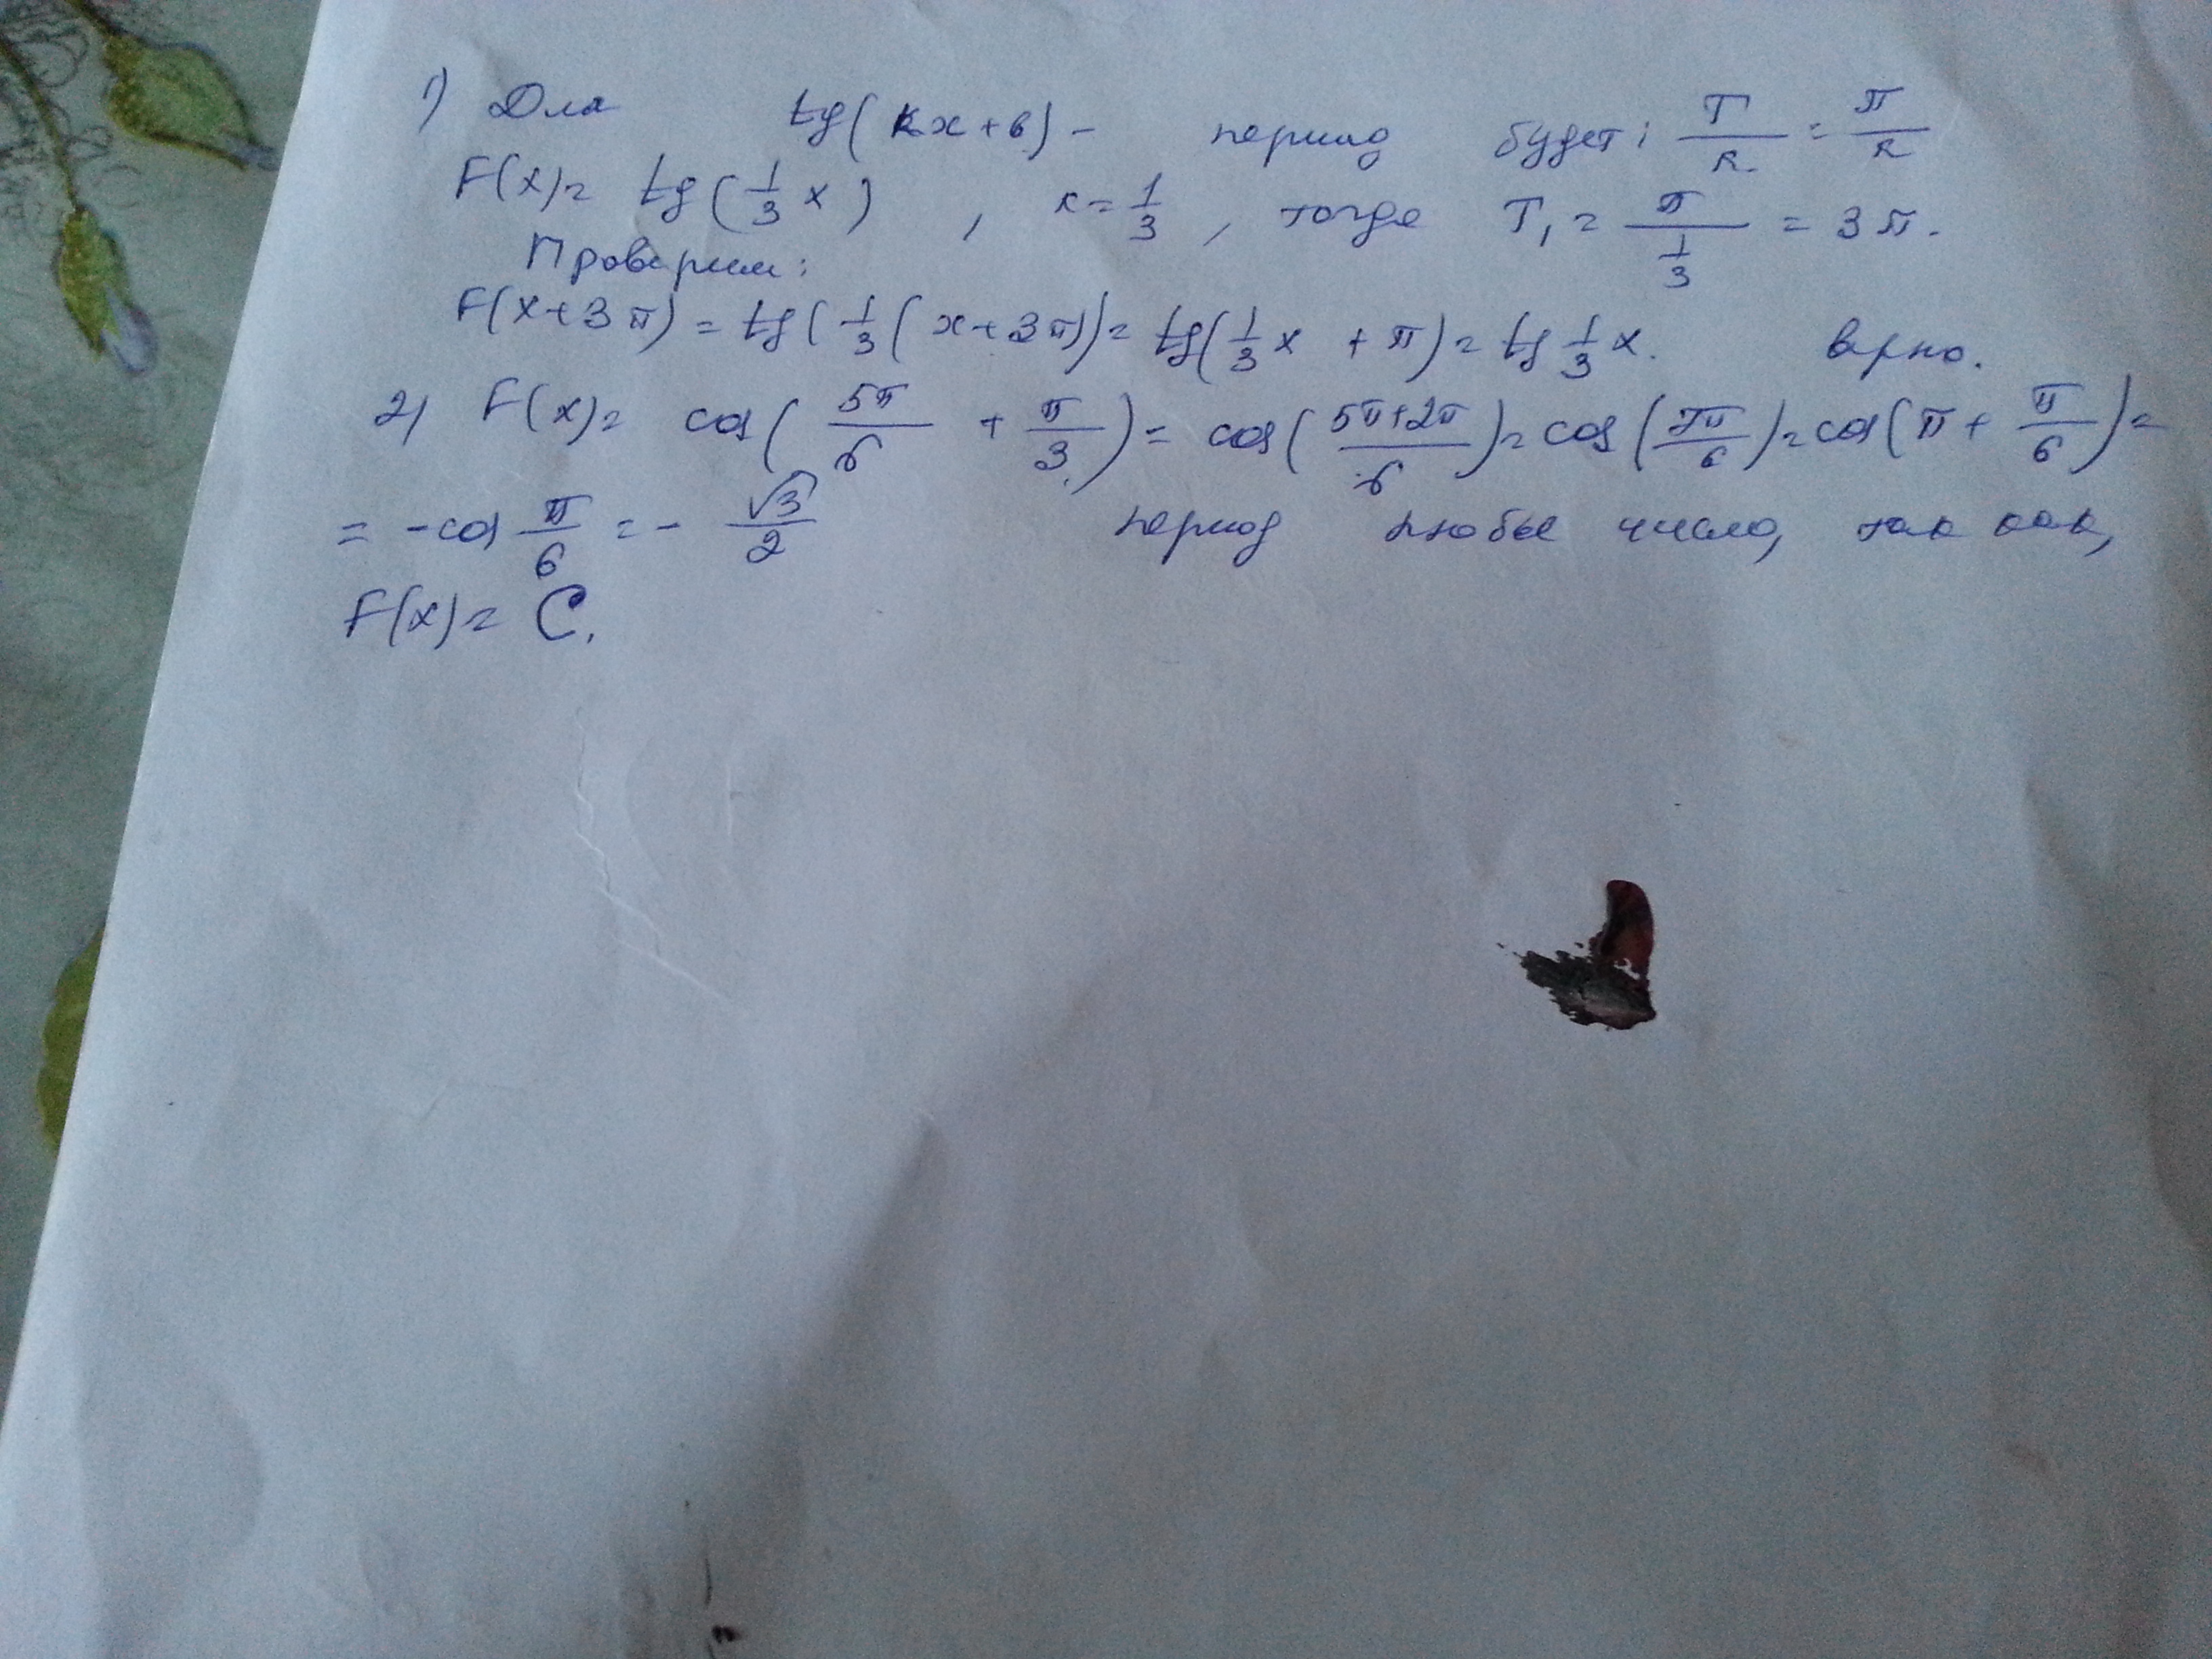 1) Для tg(kx+b) - период будет: T/k = π/k
F(x)= tg(1/3 x), k=1/3, тогда T₁= π/(1/3) = 3π.
Проверим:
F(x+3π)=tg(1/3(x+3π))=tg(1/3 x + π)=tg 1/3 x. врно.
2) F(x)= cos(5π/6 + π/3)= cos((5π+2π)/6)=cos(7π/6)=cos(π+ π/6)=
= -cos π/6 = - √3/2 период любые число, так как,
F(x)= C.